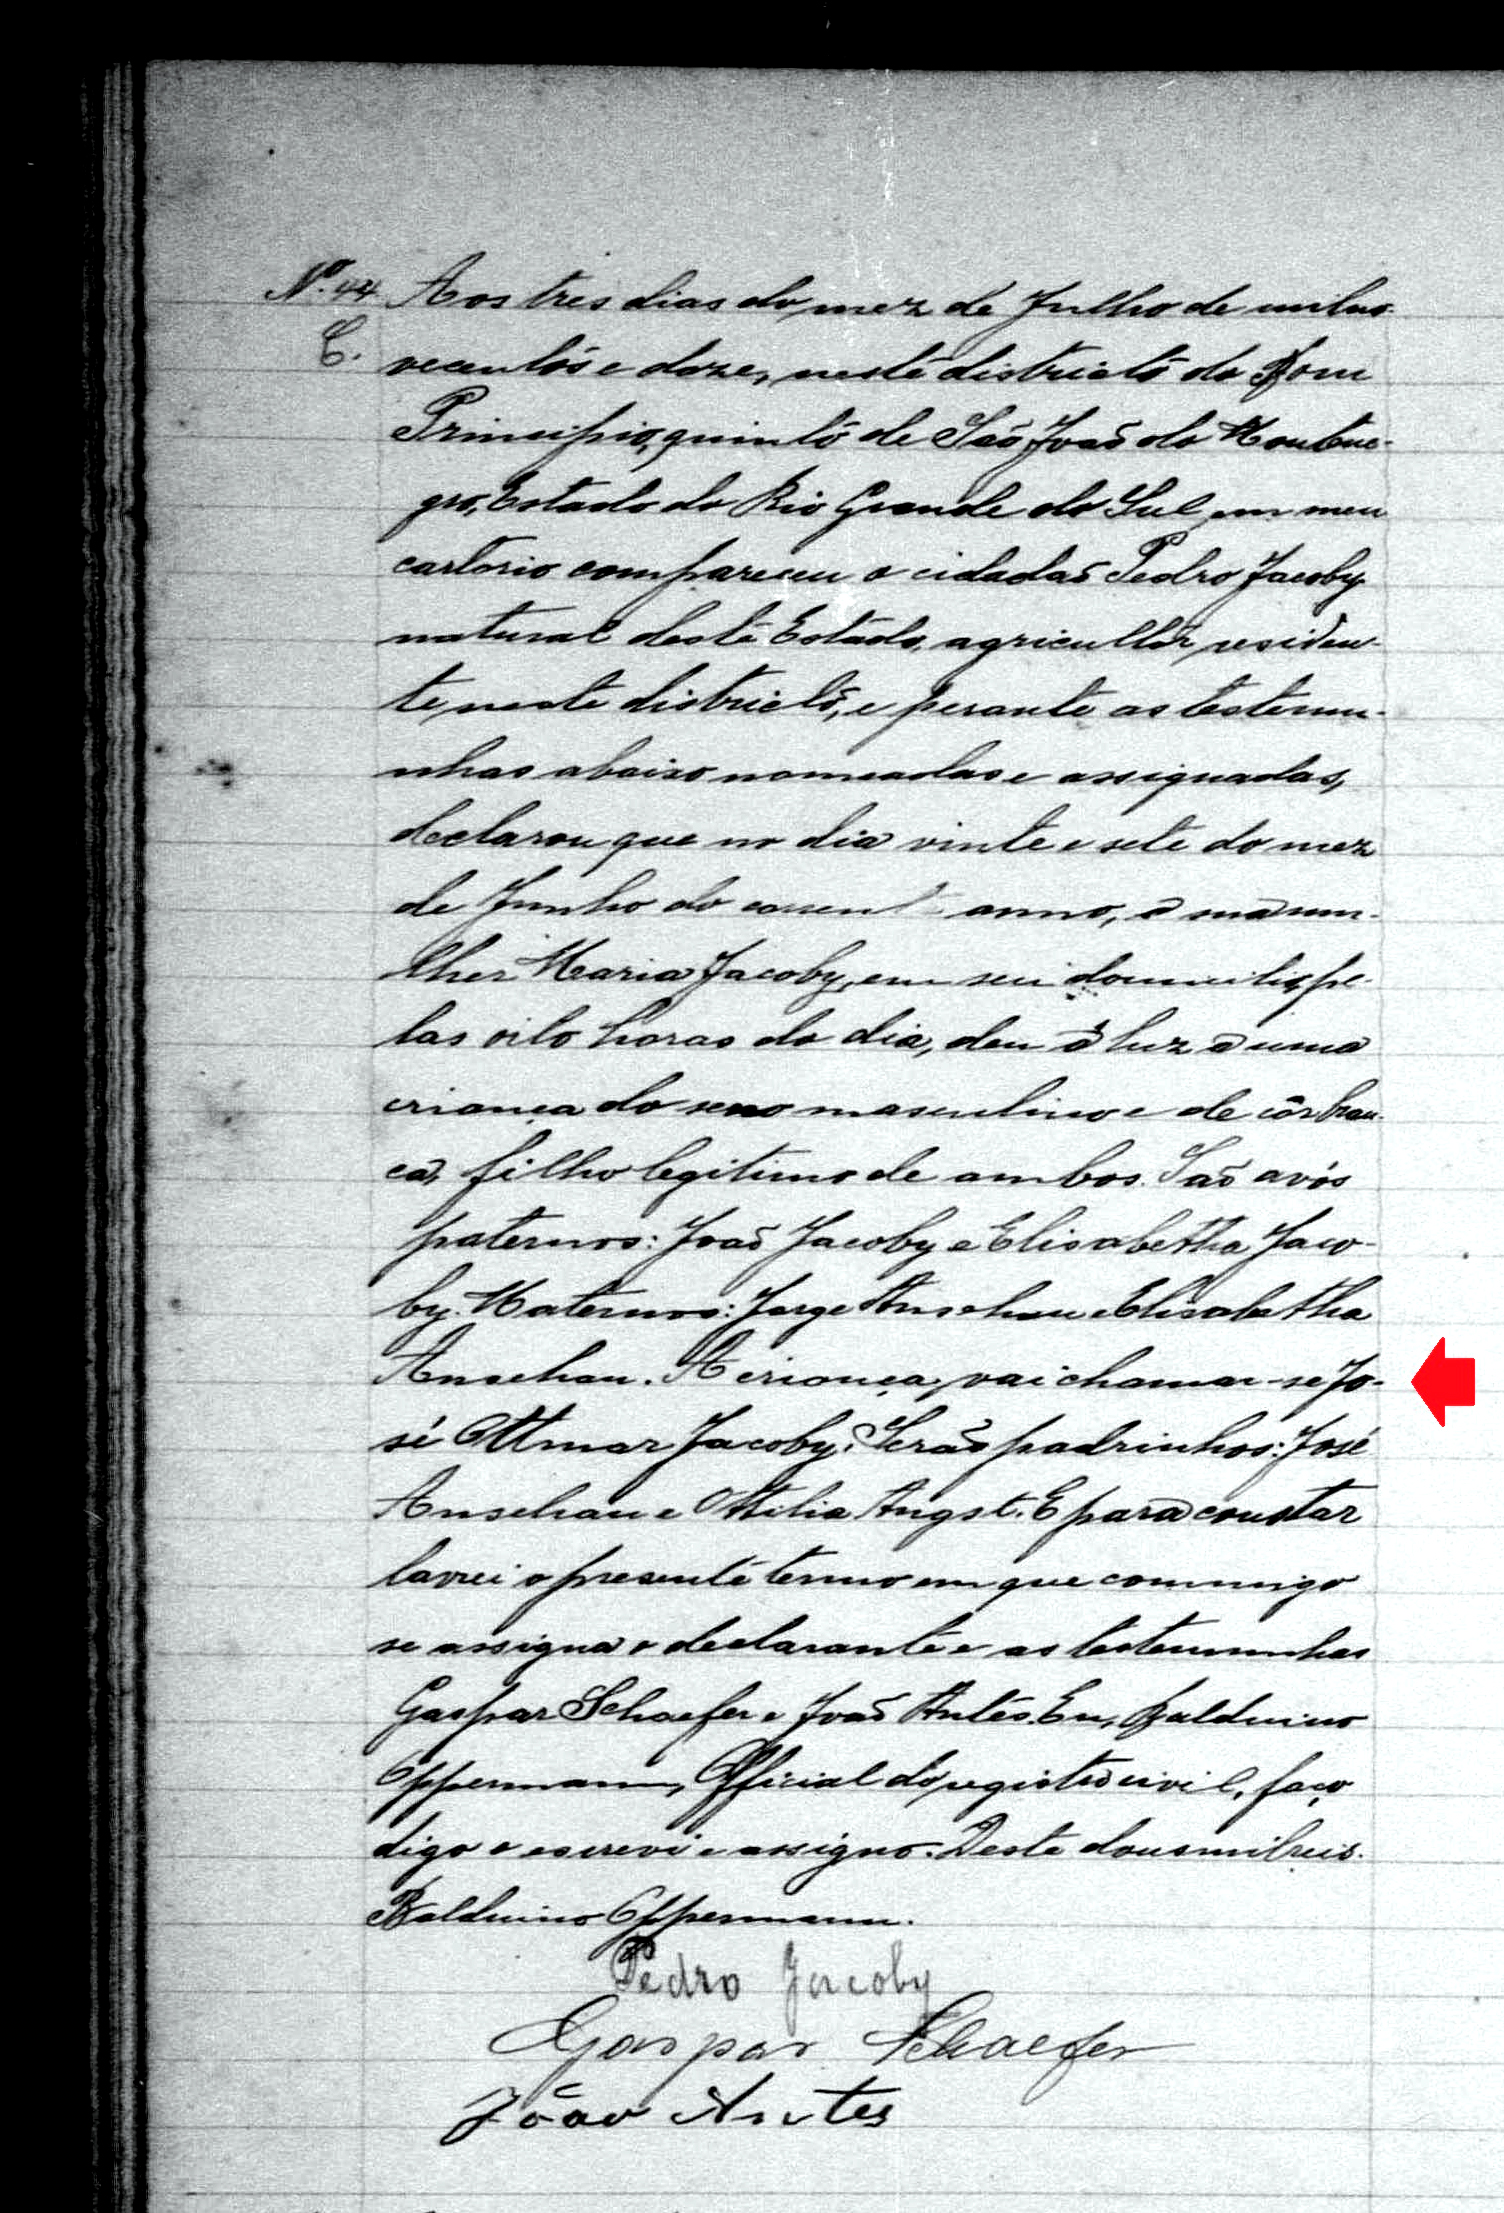 Nº. 44 Aos tres dias do mez de Julho de mil no-
C. vecentos e doze, neste districto do Bom
Principio, quinto de São João do Montene-
gro, Estado do Rio Grande do Sul, em meu
cartorio compareceu o cidadão Pedro Jacoby
natural deste Estado, agricultor, residen-
te neste districto, e perante as testemu-
nhas abaixo nomeadas e assignadas,
declarou que no dia vinte e sete do mez
de Junho do corrente anno, a sua mu-
lher Maria Jacoby, em seu domicilio, pe-
las oito horas do dia, deu á luz a uma
criança do sexo masculino e de côr bran-
ca, filho legitimo de ambos. São avós
paternos: João Jacoby e Elisabetha Jaco-
by. Maternos: Jorge Anschau e Elisabetha
Anschau. A criança vai chamar-se Jo-
sé Ottmar Jacoby. Serão padrinhos: José
Anschau e Ottilia Angst. E para constar
lavrei o presente termo em que commigo
se assigna o declarante e as testemunhas
Gaspar Schaefer e João Antes. Eu, Balduino
Oppermann, Official do registro civil, faço
digo o escrevi e assigno. Deste dous mil reis.
Balduino Oppermann.
Pedro Jacoby
Gaspar Schaefer
João Antes